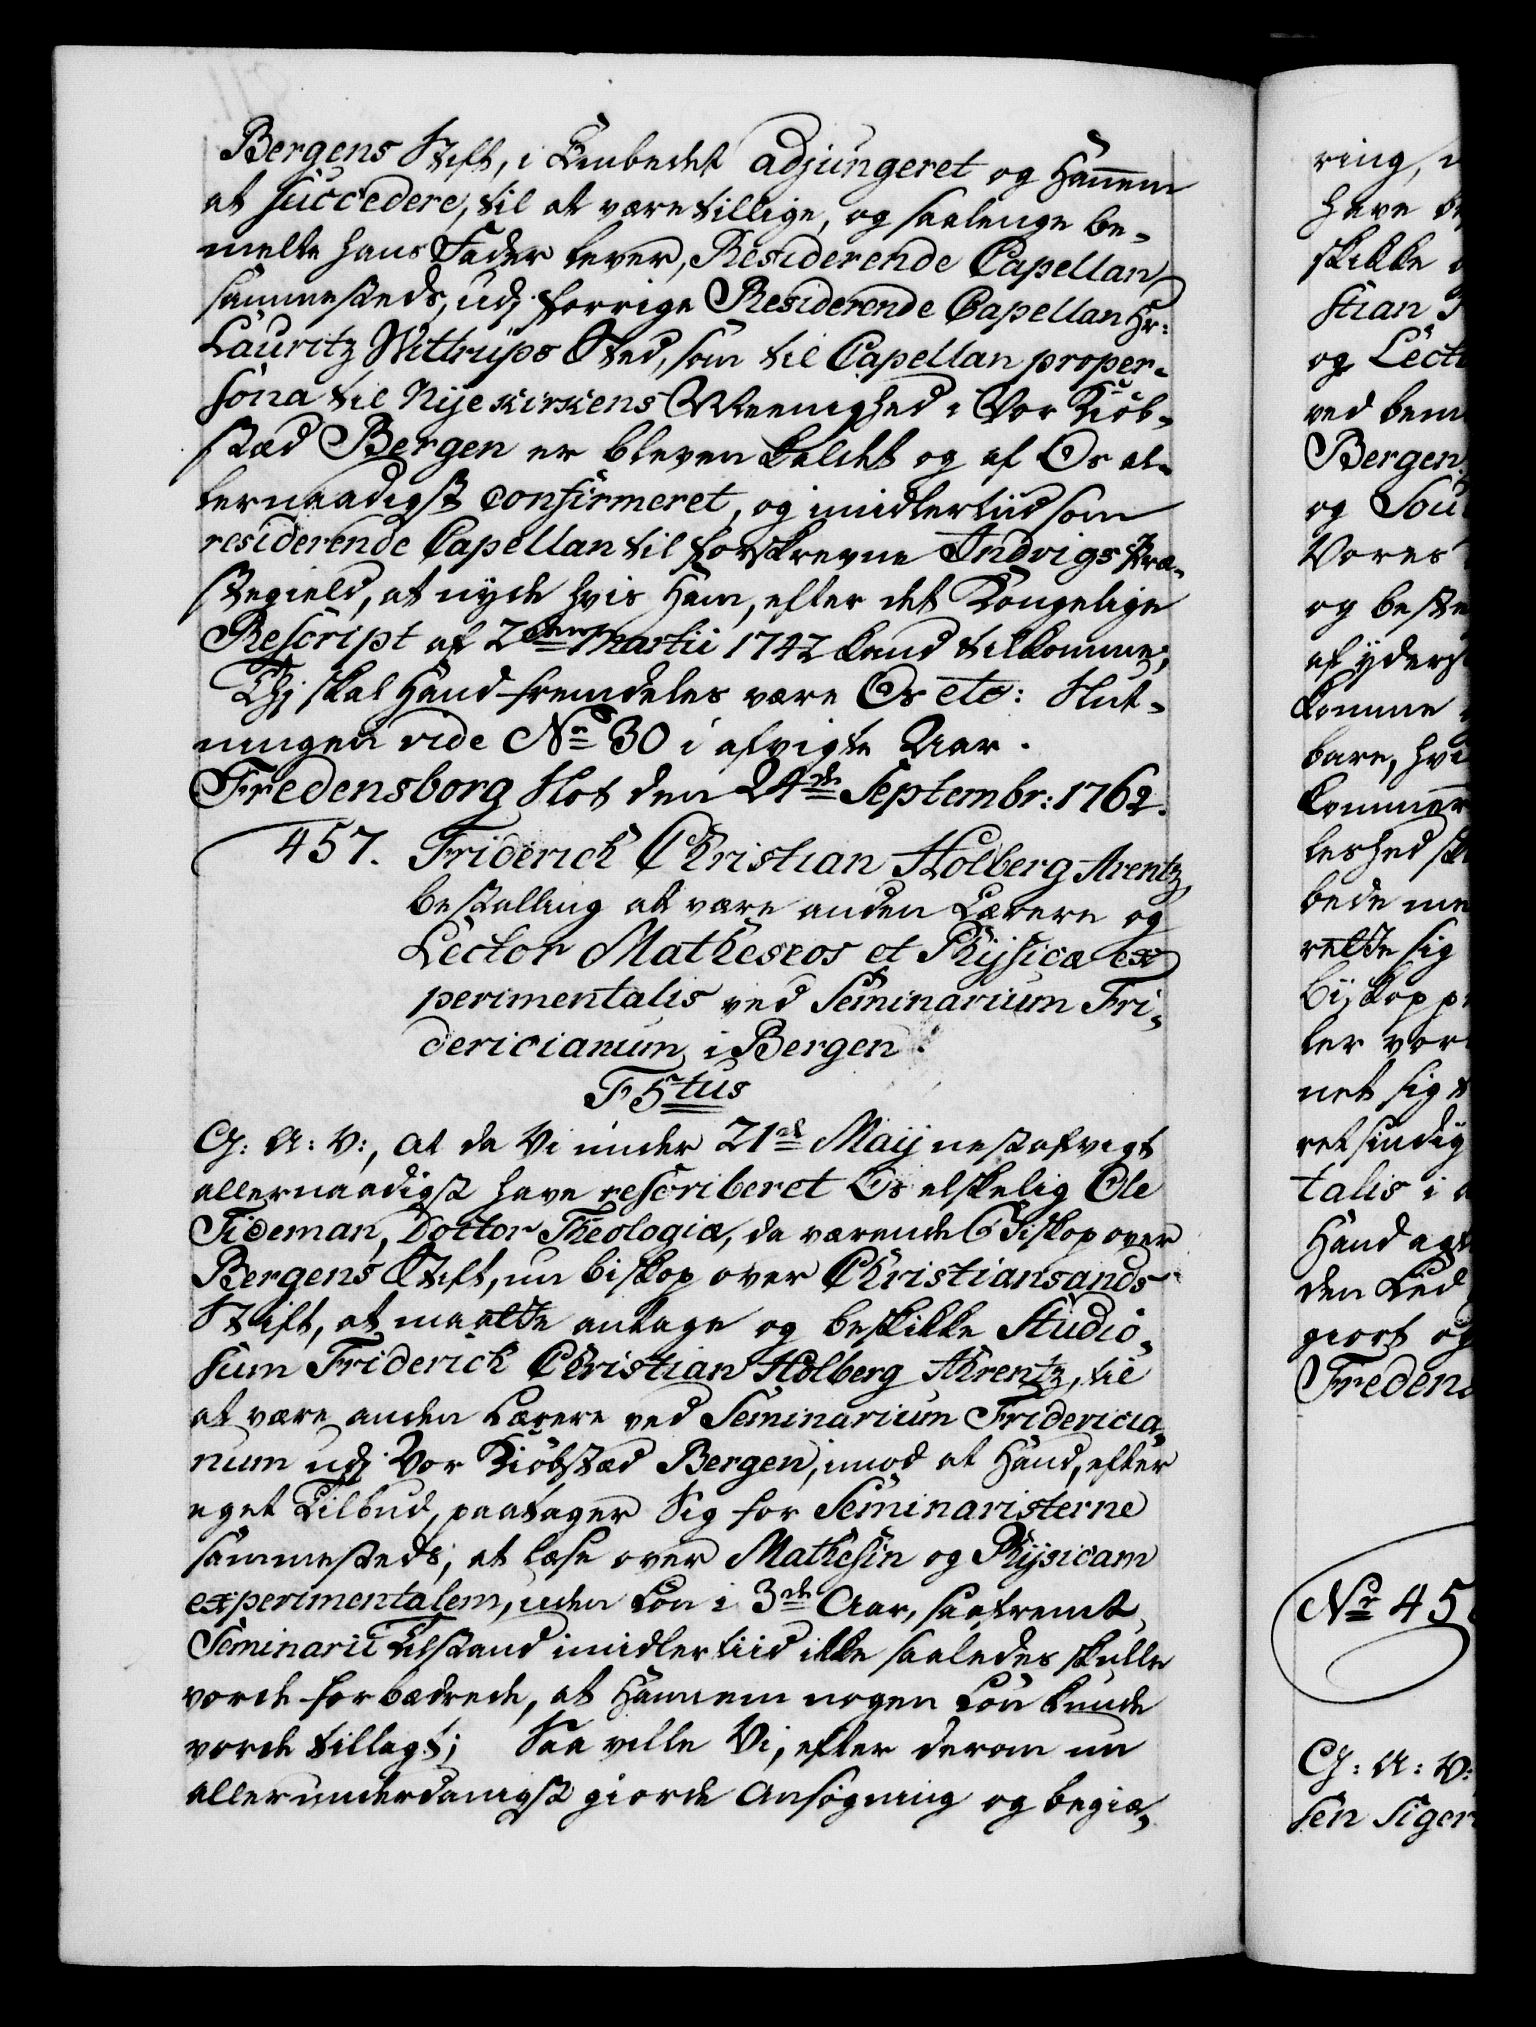 Bergens Stift, i Embedet adjungeret og Hannem
at succedere, til at være tillige, og saalenge be-
melte hans Fader lever, Residerende Capellan
sammesteds, udj forrige Residerende Capellan Hr:
Lauritz Wittrups Sted, som til Capellan proper-
sona til Nijekirkens Meenighed i Vor Kiøb-
stæd Bergen er bleven kaldet og af Os al-
lernaadigst confirmeret, og imidlertiid som
residerende Capellan til forskrevne Indvigs Præ-
stegield, at nyde hvis Ham, efter det Kongelige
Rescript af 2den Martii 1742 kand tilkomme;
Thj skal Hand fremdeles være Os etc: Slut-
ningen vide No 30 i afvigte Aar.
Fredensborg Slot den 24de Septembr: 1762.
457. Friderich Christian Holberg Arentz
bestalling at være anden Lærere og
Lector Matheseos et Phijsicæ ex
perimentalis ved Seminarium Fri-
dericianum i Bergen.
F 5tus
G: A: V:, at da Vi under 21de Maij nestafvigt
allernaadigst have rescriberet Os elskelig Ole
Tideman, Doctor Theologiæ, da værende Biskop over
Bergens Stift, nu biskop over Christiansands
Stift, at maatte antage og beskikke Studio-
sum Friderich Christian Holberg Ahrentz, til
at være anden Lærere ved Seminarium Fridericia-
num udj Vor Kiøbstæd Bergen, imod at Hand, efter
eget Tilbud, paatager Sig for Seminaristerne
sammesteds, at læse over Mathesin og Phijsicam
experimentalem, uden Løn i 3de Aar, saafremt
Seminarii Tilstand imidlertiid ikke saaledes skulle
vorde forbædrede, at Hannem nogen Løn kunde
vorde tillagt; Saa ville Vi, efter derom nu
allerunderdanigst giorde Ansøgning og begiæ-
ring,
have
skikke
stian
og Lect
ved bem
Bergen
og Sou
Vores
og beste
af yders
komme
bare, hvi
kommer
leshed sk
bede me
rette sig
bijskopp
ler vor
net sig
retsindig
talis i
Hand agt
den Lud
giort og
Fredens
No 45
G: A: V:
sen Siger